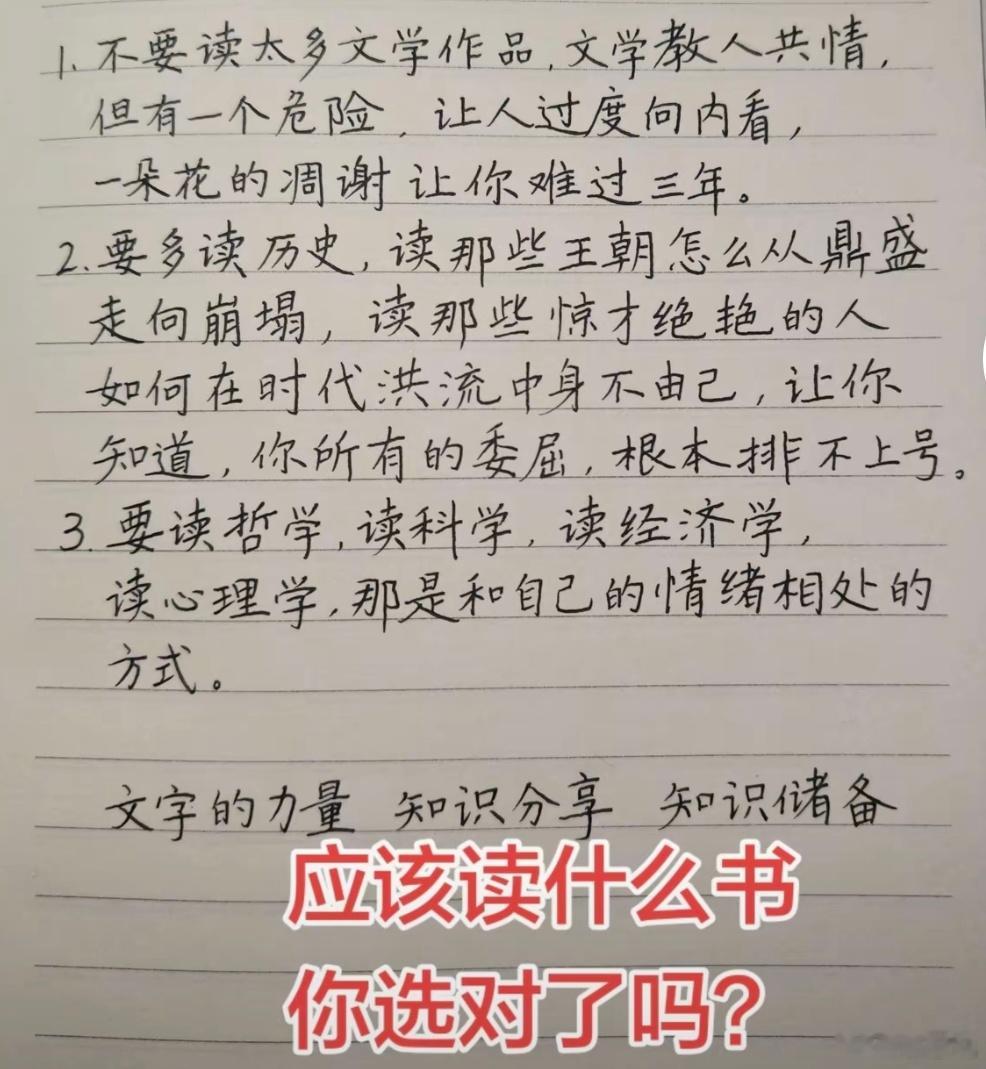 1. 不要读太多文学作品,文学教人共情,
但有一个危险,让人过度向内看,
一朵花的凋谢让你难过三年。
2. 要多读历史,读那些王朝怎么从鼎盛
走向崩塌,读那些惊才绝艳的人
如何在时代洪流中身不由己,让你
知道,你所有的委屈,根本排不上号。
3. 要读哲学,读科学,读经济学,
读心理学,那是和自己的情绪相处的
方式。
文字的力量 知识分享 知识储备
应该读什么书
你选对了吗?